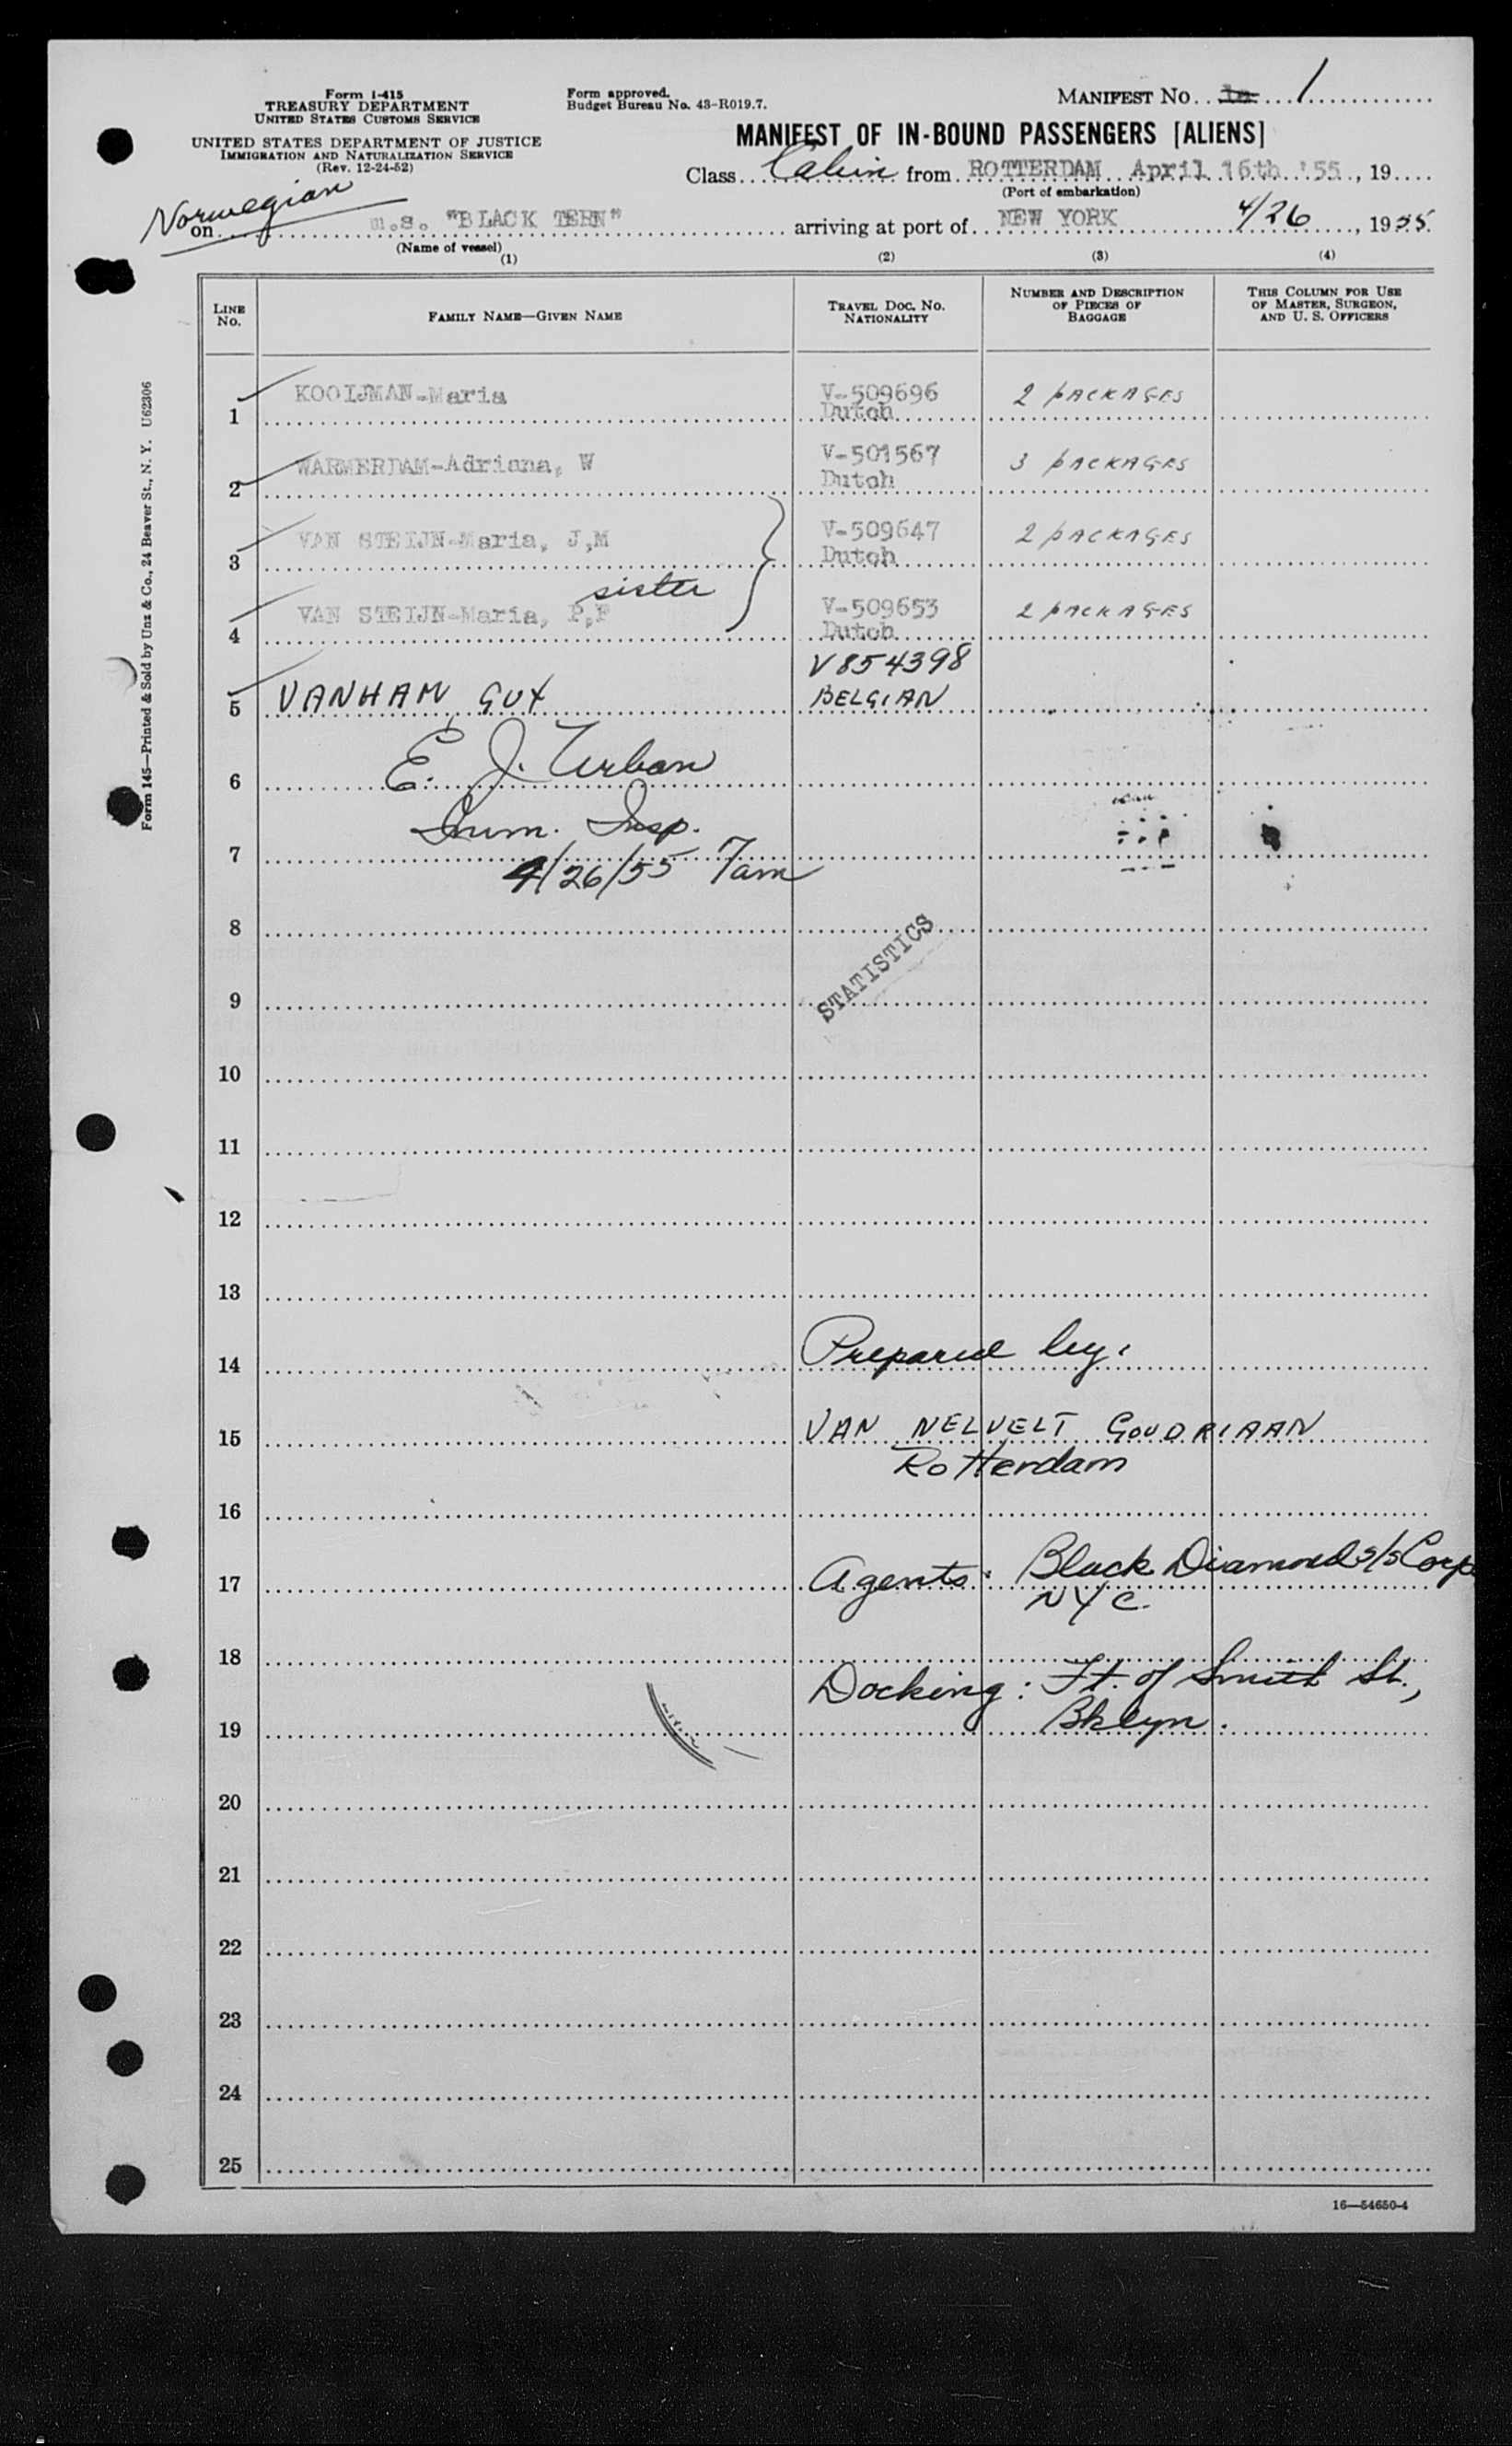 Form I-415
TREASURY DEPARTMENT
UNITED STATES CUSTOMS SERVICE
UNITED STATES DEPARTMENT OF JUSTICE
IMMIGRATION AND NATURALIZATION SERVICE
(Rev. 12-24-52)
Form approved.
Budget Bureau No. 43-R019.7.
MANIFEST NO. 1
MANIFEST OF IN-BOUND PASSENGERS [ALIENS]
Class Cabin from ROTTERDAM April 16th '55, 19
(Port of embarkation)
Norwegian
on m.s. "BLACK TERN" arriving at port of NEW YORK 4/26, 1955.
(Name of vessel)
(1) (2) (3) (4)
LINE NO. FAMILY NAME—GIVEN NAME TRAVEL DOC. NO. NATIONALITY NUMBER AND DESCRIPTION OF PIECES OF BAGGAGE THIS COLUMN FOR USE OF MASTER, SURGEON, AND U. S. OFFICERS
1 KOOIJMAN-Maria V-509696 Dutch 2 PACKAGES
2 WARMERDAM-Adriana, W V-501567 Dutch 3 PACKAGES
3 VAN STEIJN-Maria, J,M V-509647 Dutch 2 PACKAGES
sister
4 VAN STEIJN-Maria, P,F V-509653 Dutch 2 PACKAGES
5 VANHAM, GUY V854398 BELGIAN
6 E. J. Urban
7 Imm. Insp.
4/26/55 7am
8
STATISTICS
9
10
11
12
13
14 Prepared by:
15 VAN NELVELT GOUDRIAAN
Rotterdam
16
17 Agents: Black Diamond S/S Corp
NYC.
18
Docking: Ft. of Smith St.,
19 Bklyn.
20
21
22
23
24
25
16—54650-4
Form 145—Printed & Sold by Unz & Co., 24 Beaver St., N. Y. U62306